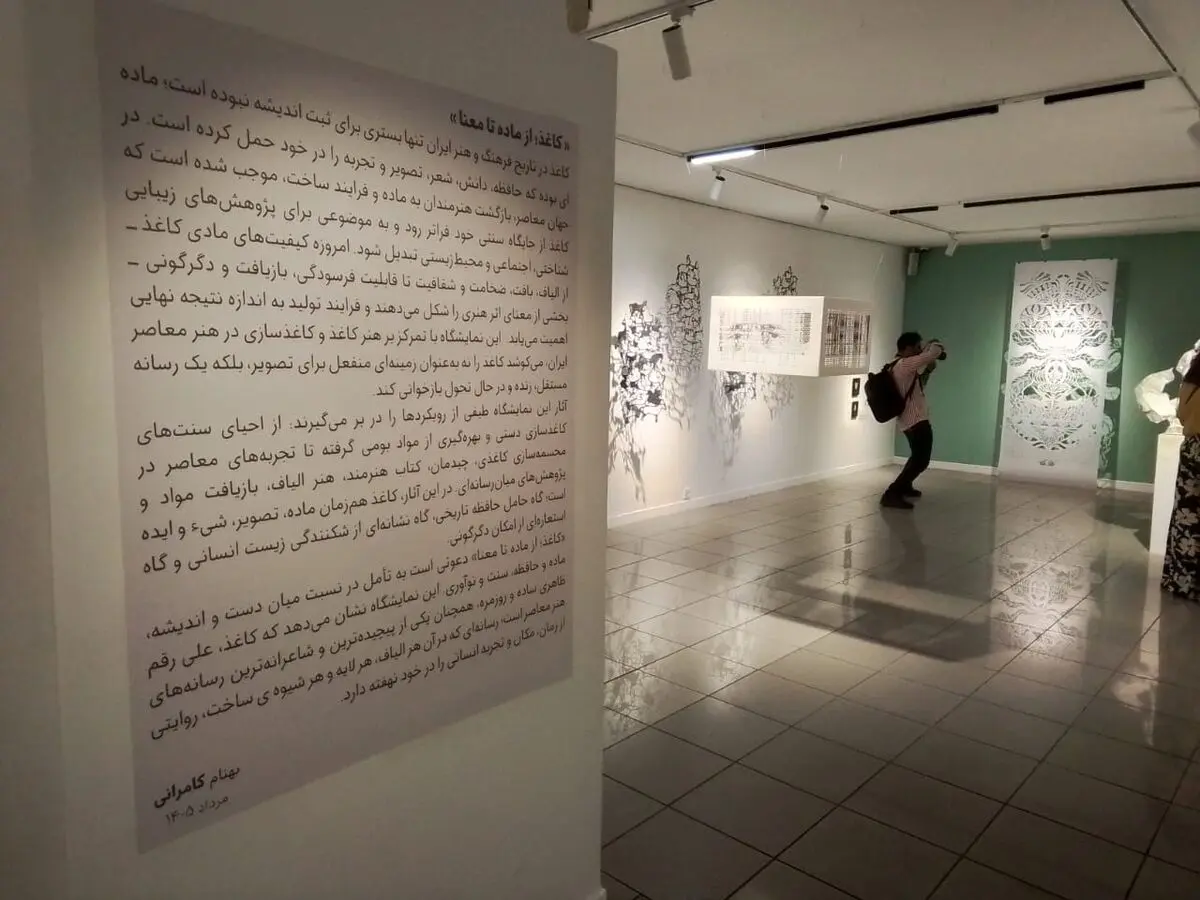 «کاغذ؛ از ماده تا معنا»
کاغذ در تاریخ فرهنگ و هنر ایران تنها بستری برای ثبت اندیشه نبوده است؛ ماده
ای بوده که حافظه، دانش، شعر، تصویر و تجربه را در خود حمل کرده است. در
جهان معاصر، بازگشت هنرمندان به ماده و فرایند ساخت، موجب شده است که
کاغذ از جایگاه سنتی خود فراتر رود و به موضوعی برای پژوهش‌های زیبایی
شناختی، اجتماعی و محیط‌زیستی تبدیل شود. امروزه کیفیت‌های مادی کاغذ ـ
از الیاف، بافت، ضخامت و شفافیت تا قابلیت فرسودگی، بازیافت و دگرگونی ـ
بخشی از معنای اثر هنری را شکل می‌دهند و فرایند تولید به اندازه نتیجه نهایی
اهمیت می‌یابد. این نمایشگاه با تمرکز بر هنر کاغذ و کاغذسازی در هنر معاصر
ایران، می‌کوشد کاغذ را نه به‌عنوان زمینه‌ای منفعل برای تصویر، بلکه یک رسانه
مستقل، زنده و در حال تحول بازخوانی کند.
آثار این نمایشگاه طیفی از رویکردها را در بر می‌گیرند: از احیای سنت‌های
کاغذسازی دستی و بهره‌گیری از مواد بومی گرفته تا تجربه‌های معاصر در
مجسمه‌سازی کاغذی، چیدمان، کتاب هنرمند، هنر الیاف، بازیافت مواد و
پژوهش‌های میان‌رسانه‌ای. در این آثار، کاغذ هم‌زمان ماده، تصویر، شیء و ایده
است؛ گاه حامل حافظه تاریخی، گاه نشانه‌ای از شکنندگی زیست انسانی و گاه
استعاره‌ای از امکان دگرگونی.
«کاغذ؛ از ماده تا معنا» دعوتی است به تأمل در نسبت میان دست و اندیشه،
ماده و حافظه، سنت و نوآوری. این نمایشگاه نشان می‌دهد که کاغذ، علی رقم
ظاهری ساده و روزمره، همچنان یکی از پیچیده‌ترین و شاعرانه‌ترین رسانه‌های
هنر معاصر است؛ رسانه‌ای که در آن هر الیاف، هر لایه و هر شیوه ی ساخت، روایتی
از زمان، مکان و تجربه انسانی را در خود نهفته دارد.
بهنام کامرانی
مرداد ۱۴۰۵